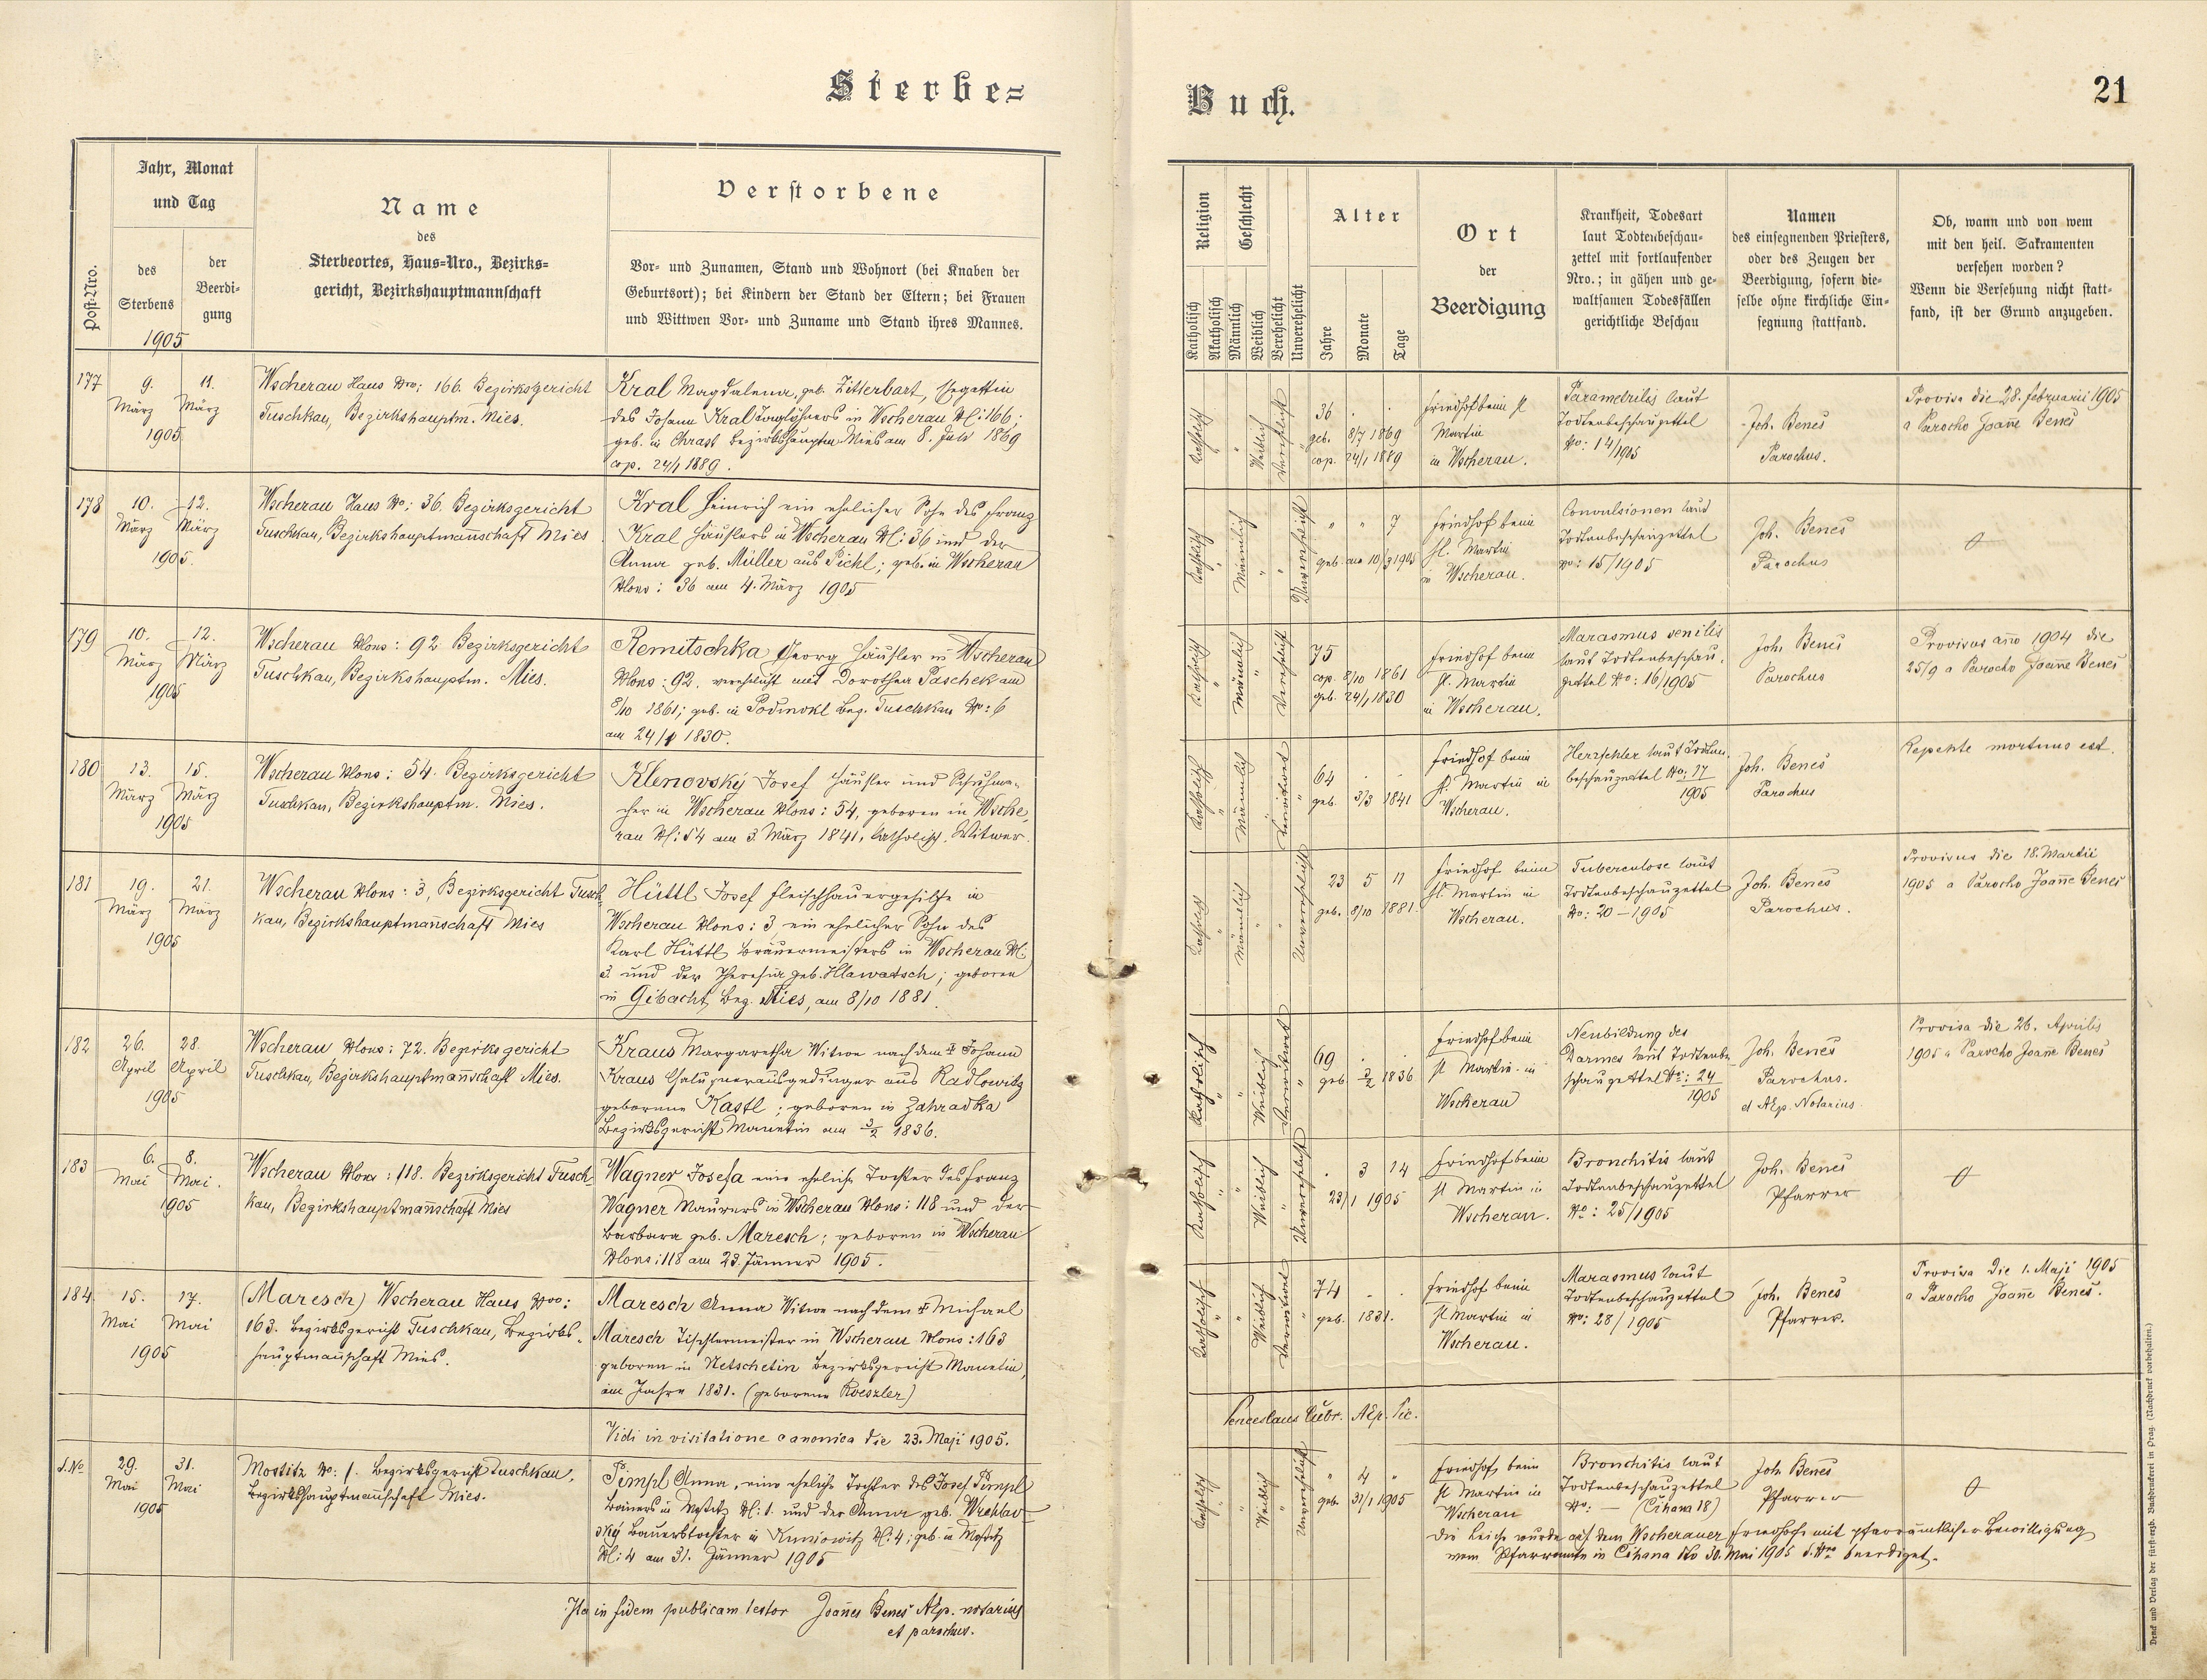 Sterbe=
Buch.
21
Post-Nro.
Jahr, Monat
und Tag
des
Sterbens
der
Beerdi-
gung
1905
Name
des
Sterbeortes, Haus=Nro., Bezirks=
gericht, Bezirkshauptmannschaft
Verstorbene
Vor- und Zunamen, Stand und Wohnort (bei Knaben der
Geburtsort); bei Kindern der Stand der Eltern; bei Frauen
und Wittwen Vor- und Zuname und Stand ihres Mannes.
Religion
Katholisch
Akatholisch
Geschlecht
Männlich
Weiblich
Verehelicht
Unverehelicht
Alter
Jahre
Monate
Tage
Ort
der
Beerdigung
Krankheit, Todesart
laut Todtenbeschau-
zettel mit fortlaufender
Nro.; in gähen und ge-
waltsamen Todesfällen
gerichtliche Beschau
Namen
des einsegnenden Priesters,
oder des Zeugen der
Beerdigung, sofern die-
selbe ohne kirchliche Ein-
segnung stattfand.
Ob, wann und von wem
mit den heil. Sakramenten
versehen worden?
Wenn die Versehung nicht statt-
fand, ist der Grund anzugeben.
177
9. März
11. März
1905
Wscherau Haus Nro: 166. Bezirksgericht
Tuschkau, Bezirkshauptm. Mies.
Kral Magdalena, geb. Zitterbart, Gattin
des Johann Kral Taglöhners in Wscherau N: 166;
geb. in Chrast Bezirkshauptm Mies am 8. Juli 1869
cop. 24/1 1889.
Katholisch " " Weiblich Verehelicht "
36 . .
geb. 8/7 1869
cop. 24/1 1889
Friedhof beim st
Martin
in Wscherau.
Parametritis laut
Todtenbeschauzettel
No: 14/1905
Joh. Beneš
Parochus.
Provisa die 28. februarii 1905
a Parocho Joanne Beneš
178
10. März
12. März
1905.
Wscherau Haus No: 36. Bezirksgericht
Tuschkau, Bezirkshauptmannschaft Mies
Kral Heinrich ein ehelicher Sohn des Franz
Kral Häuslers in Wscherau N: 36 und der
Anna geb. Müller aus Pichl; geb. in Wscherau
Nons: 36 am 4. März 1905
Katholisch " Männlich " " Unverehelicht
" " 7
geb. am 10/3 1905
Friedhof beim
hl. Martin
in Wscherau.
Convulsionen laut
Todtenbeschauzettel
No: 15/1905
Joh. Beneš
Parochus
179
10. März
12. März
1905
Wscherau Nons: 92 Bezirksgericht
Tuschkau, Bezirkshauptm. Mies.
Remitschka Georg Häusler in Wscherau
Nons: 92, verehelicht mit Dorothea Paschek am
8/10 1861; geb. in Podmokl Bez. Tuschkau No: 6
am 24/1 1830.
Katholisch " Männlich " Verehelicht
75
cop. 8/10 1861
geb. 24/1 1830
Friedhof beim
st. Martin
in Wscherau.
Marasmus senilis
laut Todtenbeschau-
zettel No: 16/1905
Joh. Beneš
Parochus
Provisus anno 1904 die
25/9 a Parocho Joanne Beneš
180
13. März
15. März
1905
Wscherau Nons: 54. Bezirksgericht
Tuschkau, Bezirkshauptm. Mies.
Klenovský Josef Häusler und Schuhma-
cher in Wscherau Nons: 54, geboren in Wsche-
rau N: 54 am 3. März 1841, katholisch. Witwer.
Katholisch " Männlich " Verwitwet "
64 . .
geb. 3/3 1841
Friedhof beim
st. Martin in
Wscherau.
Herzfehler laut Todten-
beschauzettel No: 17
1905
Joh. Beneš
Parochus
Repente mortuus est.
181
19. März
21. März
1905
Wscherau Nons: 3, Bezirksgericht Tusch-
kau, Bezirkshauptmannschaft Mies
Hüttl Josef Fleischhauergehilfe in
Wscherau Nons: 3 ein ehelicher Sohn des
Karl Hüttl Bräuermeisters in Wscherau N:
3. und der Theresia geb. Hlawatsch; geboren
in Gibacht, Bez. Mies, am 8/10 1881.
Katholisch " Männlich " " Unverehelicht
23 5 11
geb. 8/10 1881.
Friedhof beim
hl. Martin in
Wscherau.
Tuberculose laut
Todtenbeschauzettel
No: 20 – 1905
Joh. Beneš
Parochus.
Provisus die 18. Martii
1905 a Parocho Joanne Beneš
182
26. April
28. April
1905
Wscherau Nons: 72. Bezirksgericht
Tuschkau, Bezirkshauptmannschaft Mies.
Kraus Margaretha Witwe nach dem † Johann
Kraus Chalupnerausgedinger aus Radlowitz
geborene Kastl; geboren in Zahradka
Bezirksgericht Manetin am 3/2 1836.
Katholisch " " Weiblich Verwitwet "
69 . .
geb 3/2 1836
Friedhof beim
st Martin in
Wscherau
Neubildung des
Darmes laut Todtenbe-
schauzettel No: 24
1905
Joh. Beneš
Parochus.
et Aep. Notarius.
Provisa die 26. Aprilis
1905 a Parocho Joanne Beneš
183
6. Mai
8. Mai.
1905
Wscherau Nons: 118. Bezirksgericht Tusch-
kau, Bezirkshauptmannschaft Mies
Wagner Josefa eine eheliche Tochter des Franz
Wagner Maurers in Wscherau Nons: 118 und der
Barbara geb. Maresch; geboren in Wscherau
Nons: 118 am 23. Jänner 1905.
Katholisch " " Weiblich " Unverehelicht
. 3 14
23/1 1905
Friedhof beim
st Martin in
Wscherau.
Bronchitis laut
Todtenbeschauzettel
No: 25/1905
Joh. Beneš
Pfarrer
184
15. Mai
17. Mai
1905
(Maresch) Wscherau Haus Nro:
163. Bezirksgericht Tuschkau, Bezirks-
hauptmannschaft Mies.
Maresch Anna Witwe nach dem † Michael
Maresch Tischlermeister in Wscherau Nons: 163
geboren in Netschetin Bezirksgericht Manetin,
im Jahre 1831. (geborene Roeszler)
Katholisch " " Weiblich Verwitwet "
74 . .
geb. 1831.
Friedhof beim
st Martin in
Wscherau.
Marasmus laut
Todtenbeschauzettel
No: 28/1905
Joh. Beneš
Pfarrer.
Provisa die 1. Maji 1905
a Parocho Joanne Beneš.
Vidi in visitatione canonica die 23. Maji 1905.
Aep. Vic.
S. No
29. Mai
31. Mai
1905
Mostitz No: 1. Bezirksgericht Tuschkau,
Bezirkshauptmannschaft Mies.
Pimpl Anna, eine eheliche Tochter des Josef Pimpl
Bauers in Mostitz N: 1. und der Anna geb.
Bauerstochter in N: 4; geb. in Mostitz
N: 4 am 31. Jänner 1905
Katholisch " " Weiblich " Unverehelicht
" 4 "
geb. 31/1 1905
Friedhof beim
st Martin in
Wscherau
Bronchitis laut
Todtenbeschauzettel
No: — (Cihana 18)
Joh. Beneš
Pfarrer
Die Leiche wurde auf dem Wscherauer Friedhofe mit pfarrämtlicher Bewilligung
vom Pfarramte in Cihana dto 30. Mai 1905 S. Nro beerdiget.
Ita in fidem publicam testor Joannes Beneš Aep. notarius
et parochus.
Druck und Verlag der fürst-erzb. Buchdruckerei in Prag. (Nachdruck vorbehalten.)